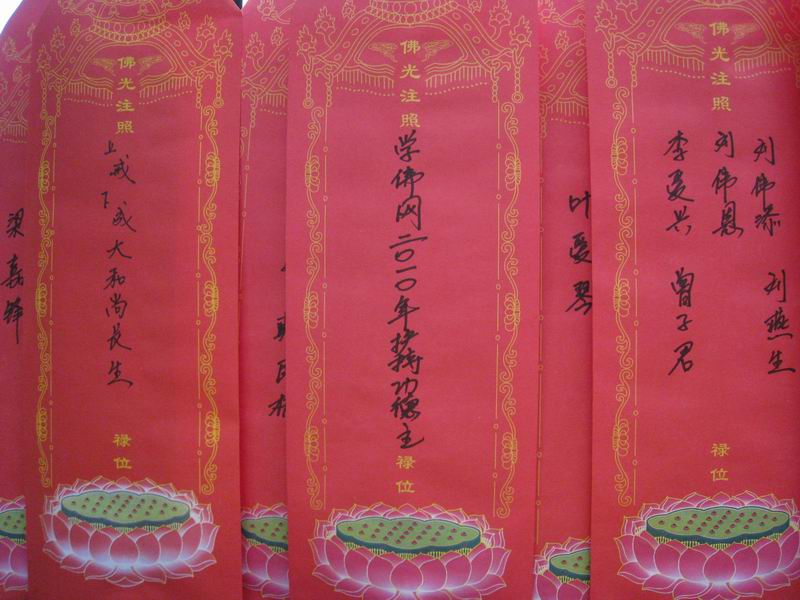 佛光注照
上戒下成大和尚长生
禄位
佛光注照
学佛网二〇一〇年护持功德主
禄位
佛光注照
刘伟添 刘燕生
刘伟恩
李爱兴 曾子君
禄位
叶爱琴
梁嘉锋